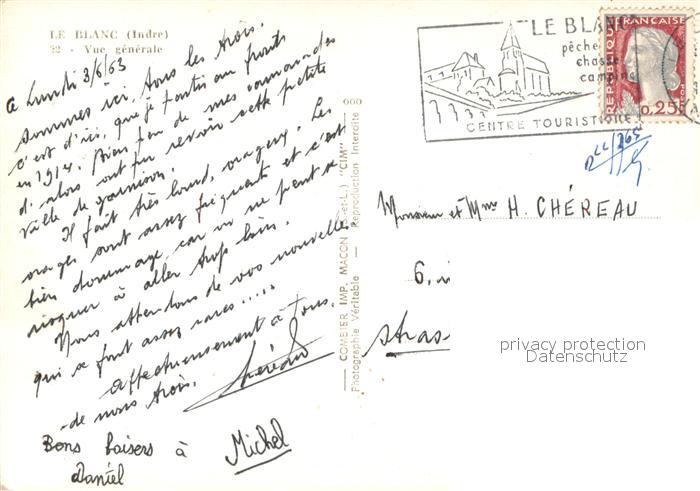 LE BLANC (Indre)
22 - Vue générale
Lundi 3/6/63
sommes ici, tous les trois.
c'est d'ici, que je partis au front
en 1914. Bien peu de mes camarades
d'alors ont pu revoir cette petite
ville de garnison.
Il fait très lourd, orageux. Les
orages sont assez fréquents et c'est
bien dommage car on ne peut se
risquer à aller trop loin.
Nous attendons de vos nouvelles
qui se font assez rares.....
Affectueusement à tous.
de nous trois.
Chéreau
Bons baisers à Michel
Daniel
COMETER IMP. MACON (S.-et-L.) "CIM"
Photographie Véritable — Reproduction Interdite
LE BLANC
pêche
chasse
camping
CENTRE TOURISTIQUE
REPUBLIQUE FRANÇAISE
0,25F
Monsieur et Mme H. CHÉREAU
6,
Stras
privacy protection
Datenschutz